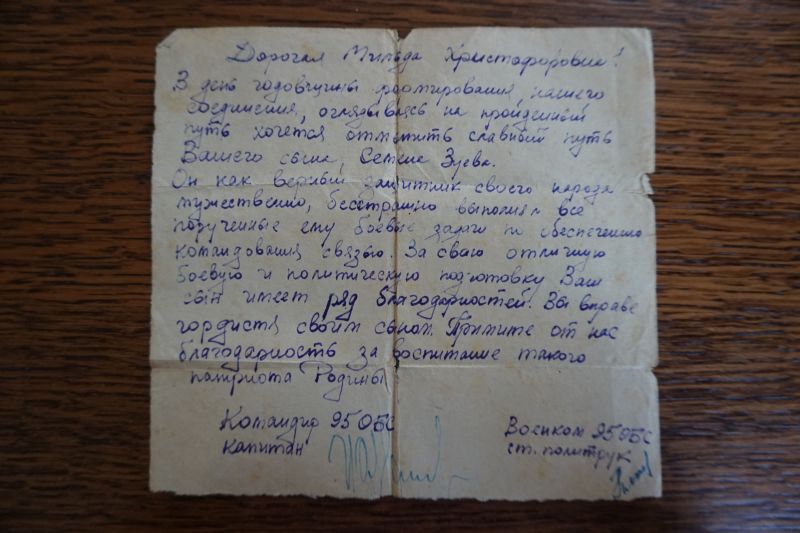 Дорогая Мильда Христофоровна!
В день годовщины формирования нашего
соединения, оглядываясь на пройденный
путь хочется отметить славный путь
Вашего сына, Семена Зуева.
Он как верный защитник своего народа
мужественно, бесстрашно выполнял все
порученные ему боевые задачи по обеспечению
командования связью. За свою отличную
боевую и политическую подготовку Ваш
сын имеет ряд благодарностей. Вы вправе
гордится своим сыном. Примите от нас
благодарность за воспитание такого
патриота Родины
Командир 95 ОБС
капитан
Военком 95 ОБС
ст. политрук